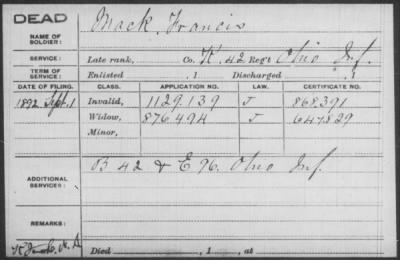 DEAD
NAME OF SOLDIER: Mack, Francis
SERVICE: Late rank, Co. K. 42 Reg't Ohio Inf.
TERM OF SERVICE: Enlisted , 1 Discharged , 1
DATE OF FILING. CLASS. APPLICATION NO. LAW. CERTIFICATE NO.
1892 Sept. 1 Invalid, 1129.139 J 868.391
Widow, 876.494 J 647.829
Minor,
ADDITIONAL SERVICES: B 42 & E 96. Ohio Inf.
REMARKS:
Died , 1 , at